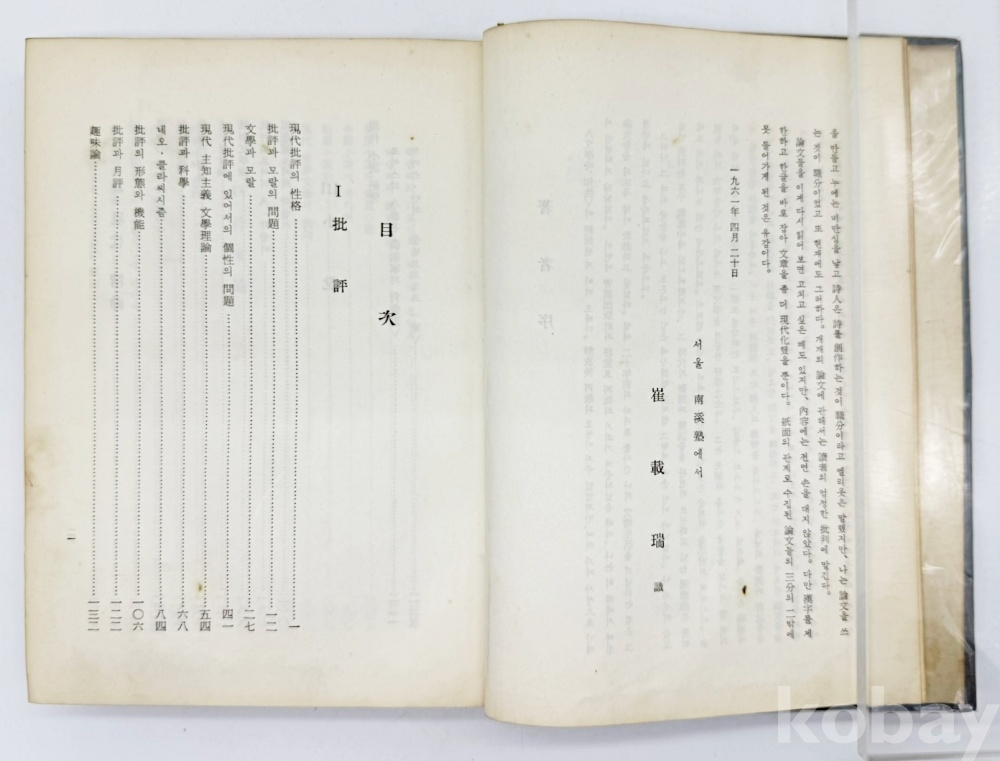 을 만들고 누에는 비단실을 낳고 詩人은 詩를 創作하는 것이 職分이라고 엘리옷은 말했지만, 나는 論文을 쓰
는 것이 職分이었고 또 현재에도 그러하다. 개개의 論文에 관해서는 讀者의 엄정한 批判에 맡긴다.
論文들을 이제 다시 읽어 보면 고치고 싶은 데도 있지만, 內容에는 전연 손을 대지 않았다. 다만 漢字를 제
한하고 한글을 바로 잡아 文章을 좀 더 現代化했을 뿐이다. 紙面의 관계로 수집된 論文들의 三分의 二밖에
못 들어가게 된 것은 유감이다.
一九六一年 四月 二十日
서울 南溪塾에서
崔載瑞 識
目次
I 批評
現代批評의 性格…一
批評과 모랄의 問題…一二
文學과 모랄…二七
現代批評에 있어서의 個性의 問題…四一
現代 主知主義 文學理論…五四
批評과 科學…六八
네오・클라씨시즘…八四
批評의 形態와 機能…一〇六
批評과 月評…一二二
趣味論…一三二
kobay